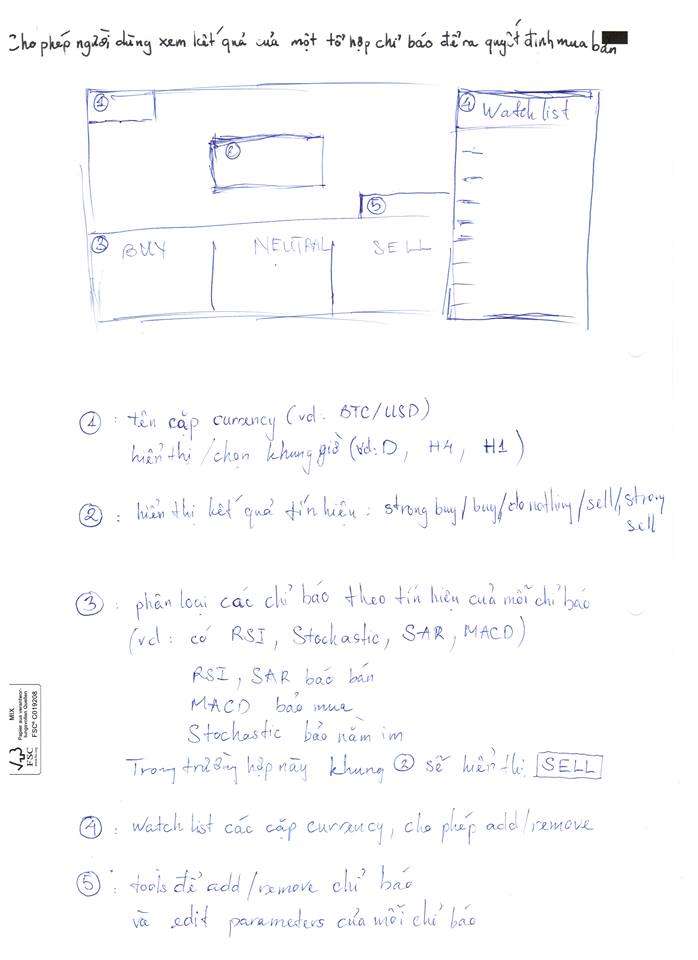 Cho phép người dùng xem kết quả của một tổ hợp chỉ báo để ra quyết định mua bán
①
④ Watch list
②
⑤
③ BUY NEUTRAL SELL
① : tên cặp currency (vd: BTC/USD)
hiển thị/chọn khung giờ (vd: D, H4, H1)
② : hiển thị kết quả tín hiệu : strong buy/buy/do nothing/sell/strong
sell
③ : phân loại các chỉ báo theo tín hiệu của mỗi chỉ báo
(vd: có RSI, Stochastic, SAR, MACD)
RSI, SAR báo bán
MACD bảo mua
Stochastic bảo nằm im
Trong trường hợp này khung ② sẽ hiển thị SELL
④ : Watch list các cặp currency, cho phép add/remove
⑤ : tools để add/remove chỉ báo
và edit parameters của mỗi chỉ báo
MIX
Papier aus verantwor-
tungsvollen Quellen
FSC® C019208
FSC